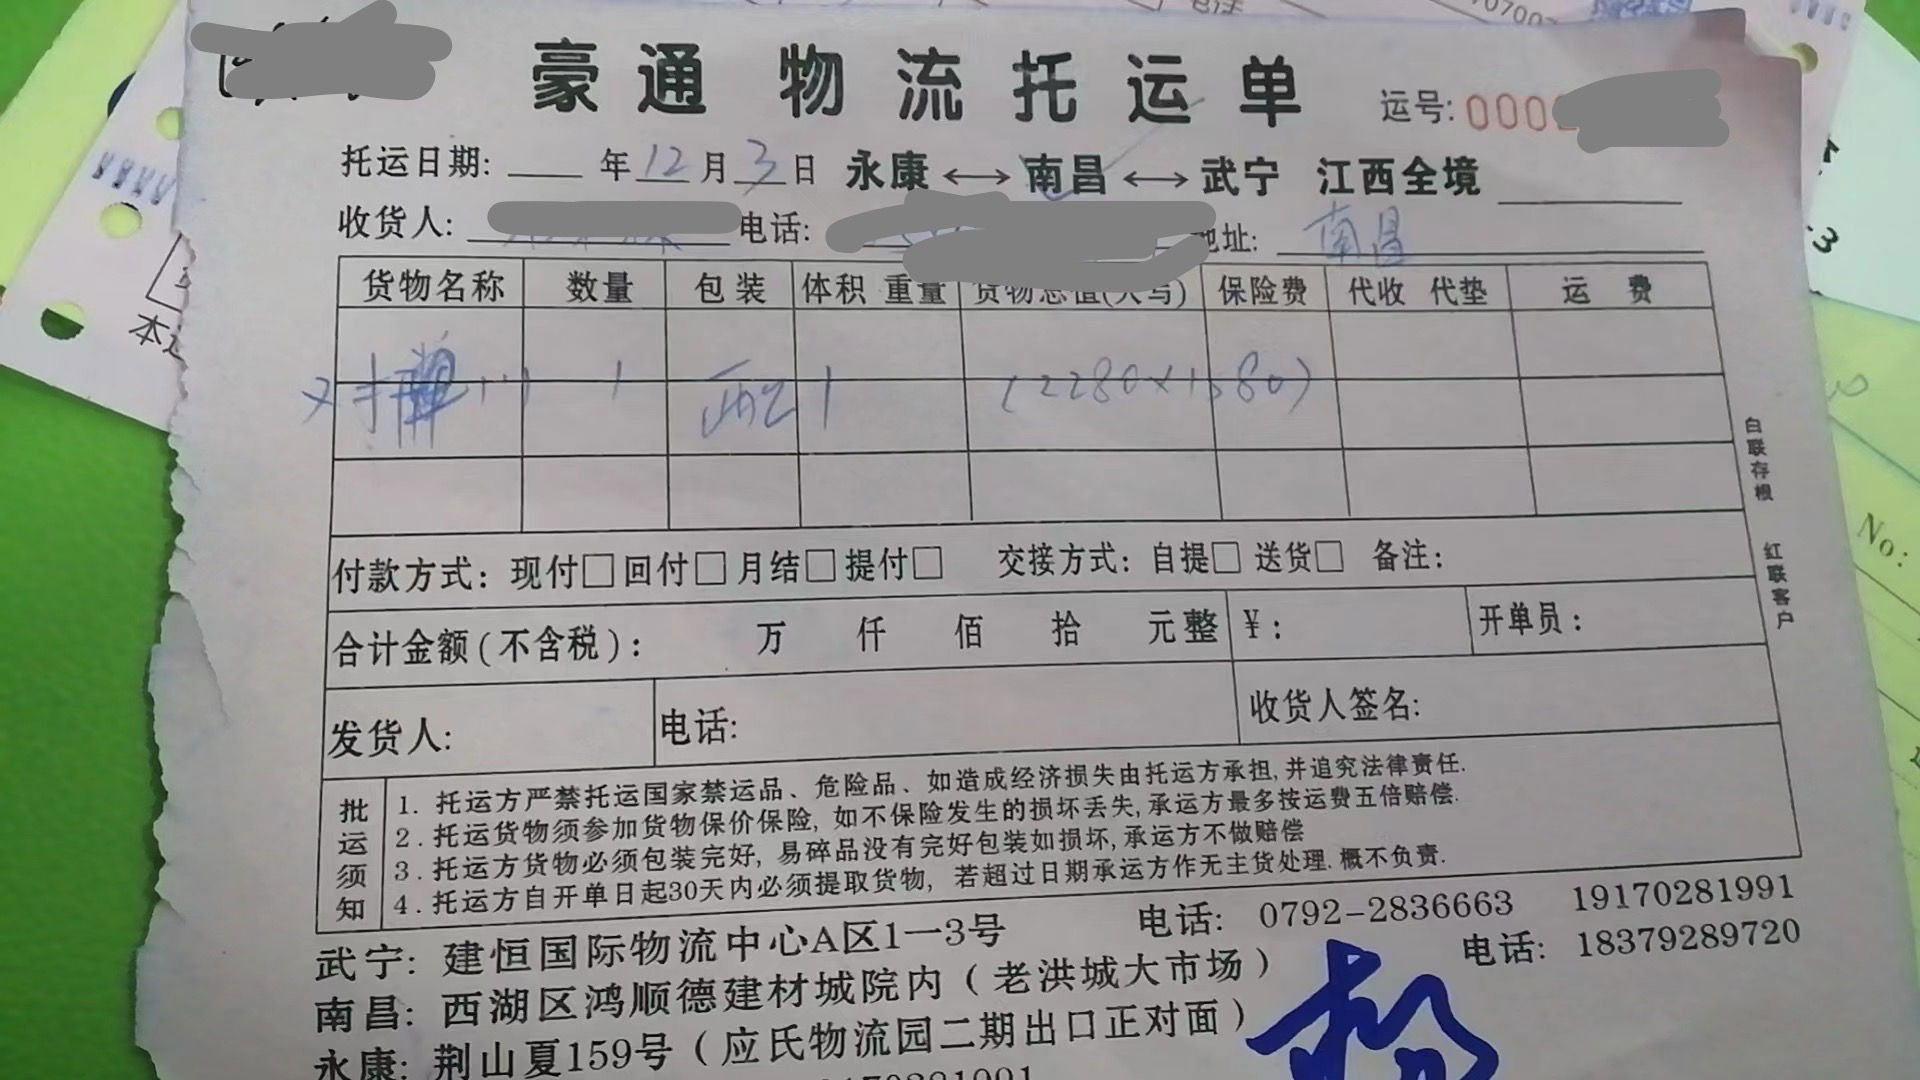 豪通 物流托运单 运号: 000
托运日期: 年12月3日 永康⟷南昌⟷武宁 江西全境
收货人: 电话: 地址: 南昌
货物名称 数量 包装 体积 重量 货物总值(大写) 保险费 代收 代垫 运 费
1 1 (2280×1580)
付款方式: 现付□回付□月结□提付□ 交接方式: 自提□ 送货□ 备注:
合计金额(不含税): 万 仟 佰 拾 元整 ¥: 开单员:
发货人: 电话: 收货人签名:
批运须知
1. 托运方严禁托运国家禁运品、危险品、如造成经济损失由托运方承担,并追究法律责任.
2. 托运货物须参加货物保价保险, 如不保险发生的损坏丢失,承运方最多按运费五倍赔偿.
3. 托运方货物必须包装完好, 易碎品没有完好包装如损坏,承运方不做赔偿
4. 托运方自开单日起30天内必须提取货物, 若超过日期承运方作无主货处理.概不负责.
武宁: 建恒国际物流中心A区1一3号 电话: 0792-2836663 19170281991
南昌: 西湖区鸿顺德建材城院内(老洪城大市场) 电话: 18379289720
永康: 荆山夏159号(应氏物流园二期出口正对面)
白联存根 红联客户
No: